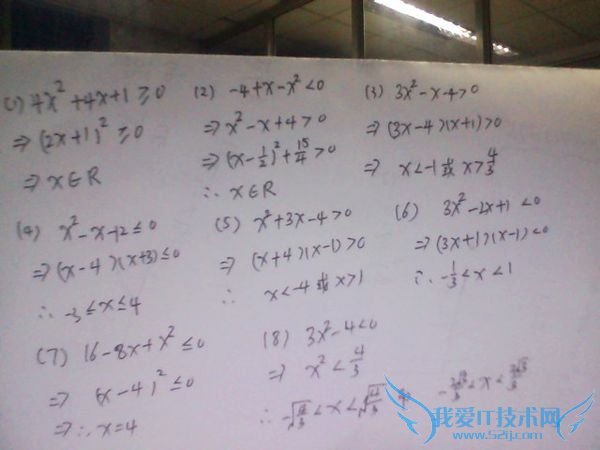 (1) 4x²+4x+1≥0
⇒(2x+1)²≥0
⇒x∈R
(2) -4+x-x²<0
⇒x²-x+4>0
⇒(x-1/2)²+15/4>0
∴x∈R
(3) 3x²-x-4>0
⇒(3x-4)(x+1)>0
⇒x<-1或x>4/3
(4) x²-x-12≤0
⇒(x-4)(x+3)≤0
∴-3≤x≤4
(5) x²+3x-4>0
⇒(x+4)(x-1)>0
∴x<-4或x>1
(6) 3x²-2x+1<0
⇒(3x+1)(x-1)<0
∴-1/3<x<1
(7) 16-8x+x²≤0
⇒(x-4)²≤0
⇒∴x=4
(8) 3x²-4<0
⇒x²<4/3
∴-√(4/3)<x<√(4/3)
-2√3/3<x<2√3/3
我爱IT技术网
www.52ij.com